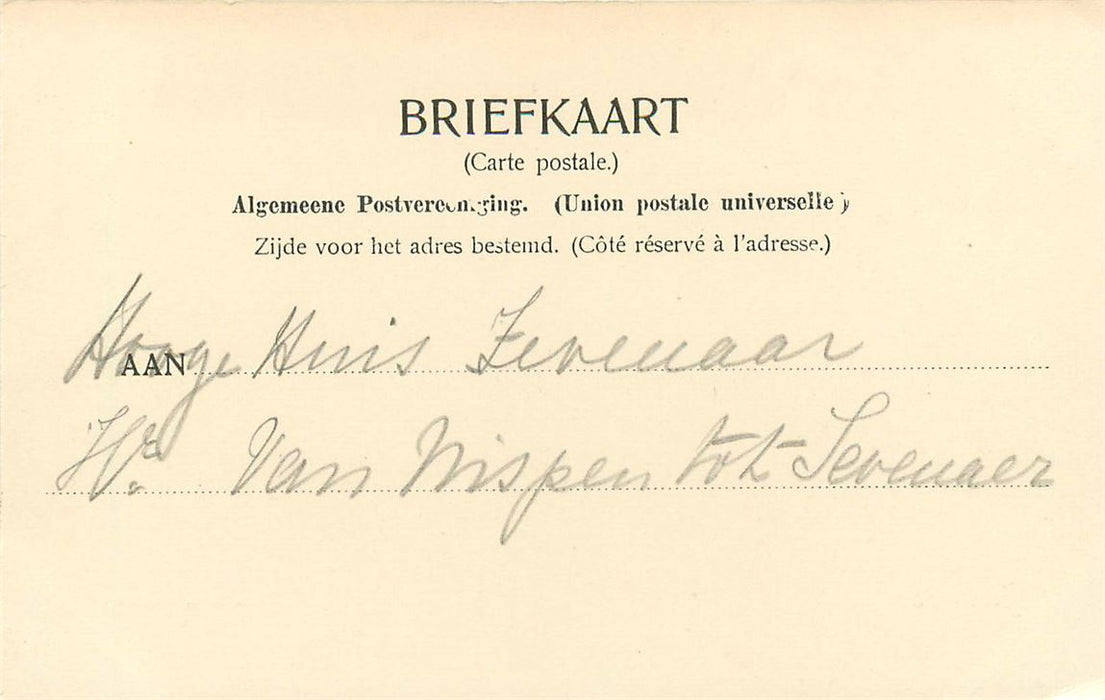 BRIEFKAART
(Carte postale.)
Algemeene Postvereeniging. (Union postale universelle)
Zijde voor het adres bestemd. (Côté réservé à l'adresse.)
AAN Hooge Huis Zevenaar
Van Nispen tot Sevenaer